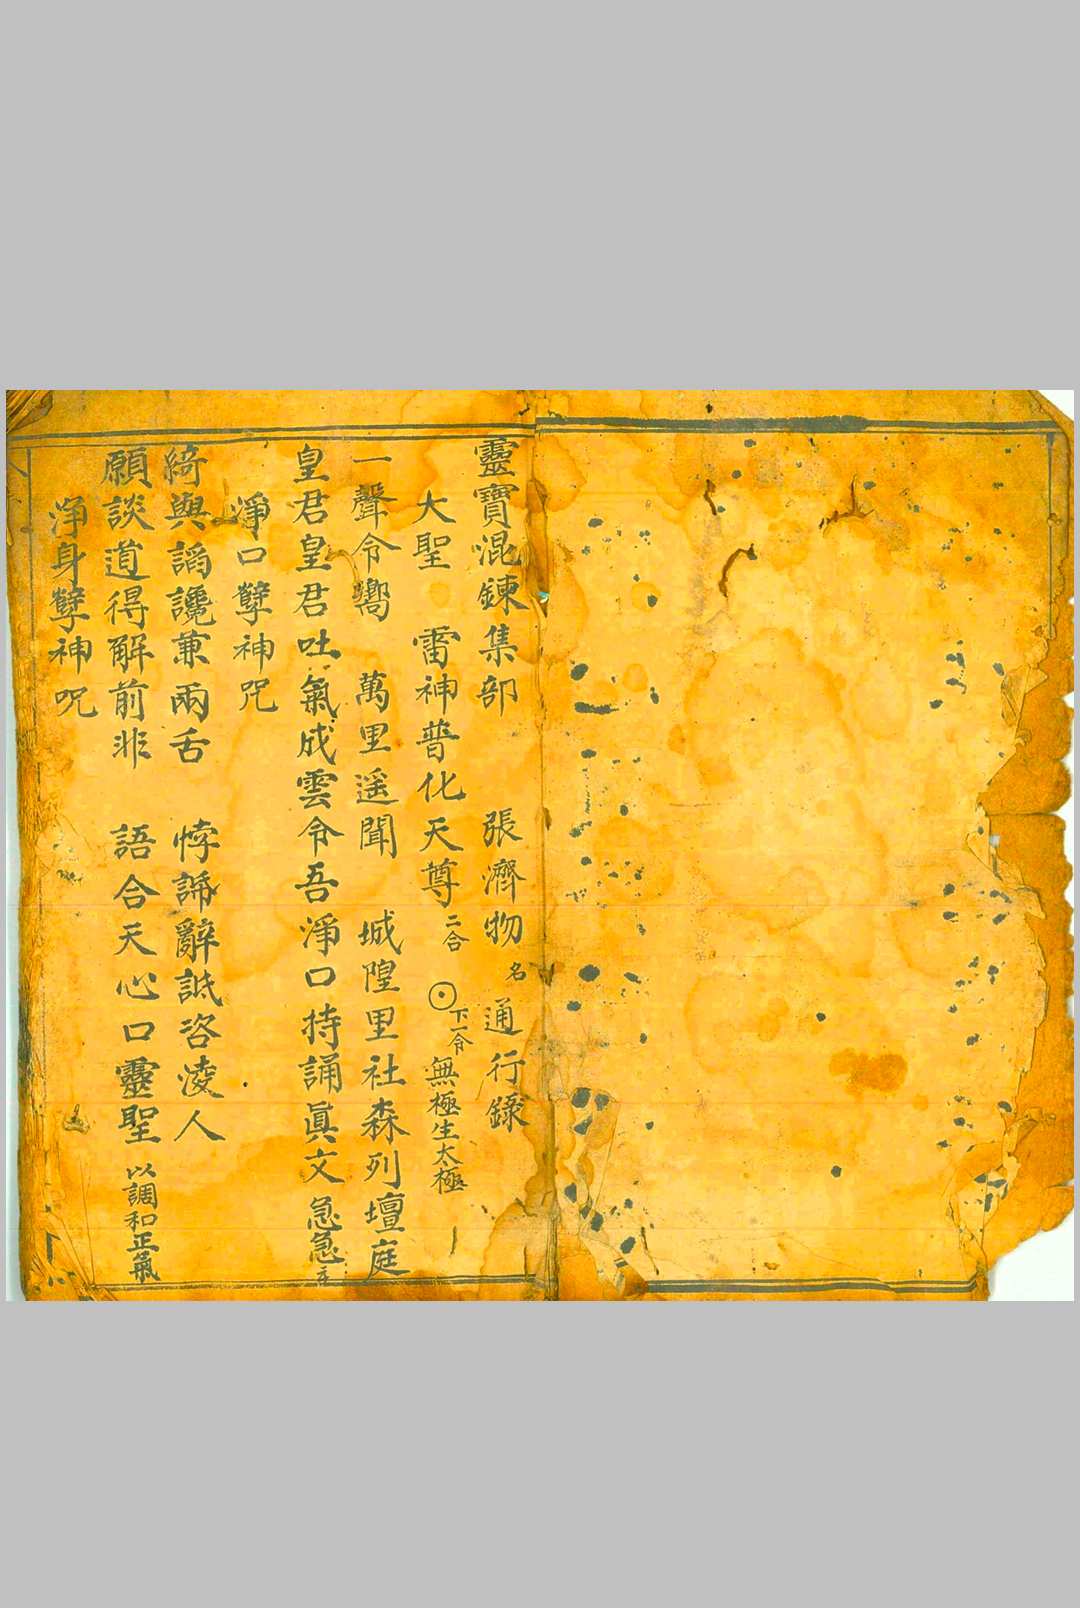 靈寶混鍊集部 張濟物 名 通行錄
大聖 雷神普化天尊 二合 下一令 無極生太極
一聲令嚮 萬里遥聞 城隍里社森列壇庭
皇君皇君吐氣成雲令吾淨口持誦眞文急急
淨口孽神咒
綺與謟讒兼兩舌 悖諦辭詆咨淩人
願談道得解前非 語合天心口靈聖 以調和正氣
淨身孽神呪